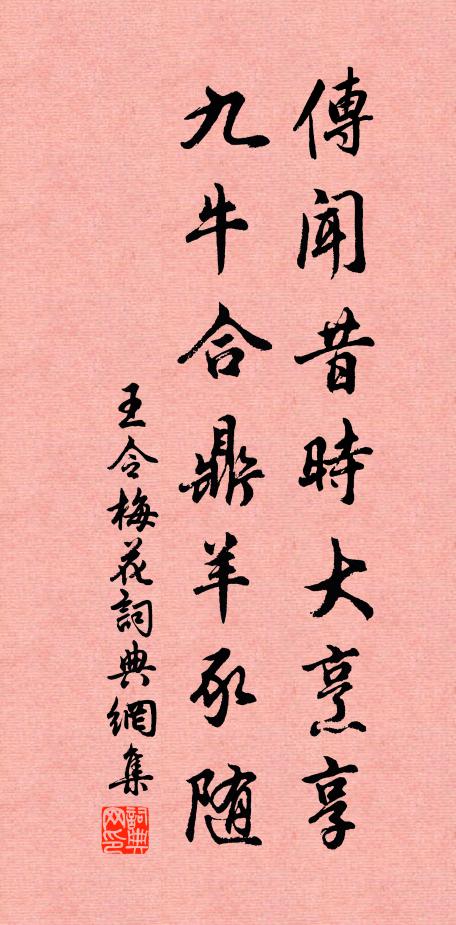 傳聞昔時大烹享
九牛合鼎羊豕隨
王令梅花詞典網集
詞典网印